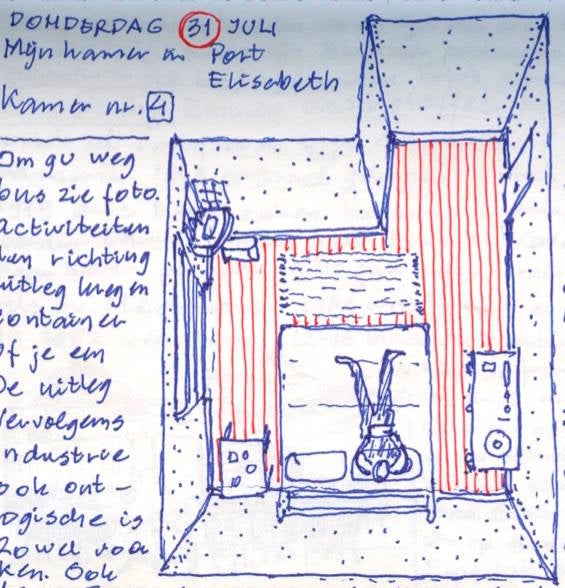 DONDERDAG 31 JULI
Mijn kamer in Port
Elisabeth
Kamer nr. 4
Om 9u weg
bus zie foto
activiteiten
dan richting
uitleg kregen
container
of je een
De uitleg
Vervolgens
industrie
ook ont-
ogische is
zowel voor
ken Ook